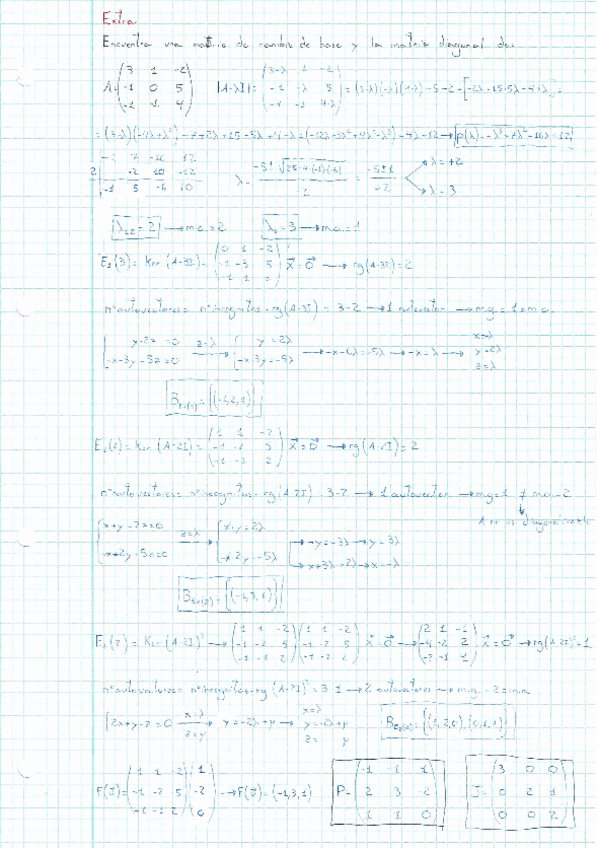 Extra
Encuentra una matriz de cambio de base y la matriz diagonal de:
A = (3 1 -2 / -1 0 5 / -1 -1 4) |A-λI| = (3-λ 1 -2 / -1 -λ 5 / -1 -1 4-λ) = (3-λ)(-λ)(4-λ)-5-2-[-2λ-15+5λ-4+λ] =
= (3-λ)(-4λ+λ²)-7+2λ+15-5λ+4-λ = p(λ) = -λ³+7λ²-16λ+12
-1 7 -16 12
2 -2 10 -12
-1 5 -6 0
λ = -5±√25-4·(-1)·(-6) = -5±1 / -2 λ=+2 λ=3
λ₁,₂=2 → m.a.=2 λ₃=3 → m.a.=1
E₁(3) = Ker (A-3I) = (0 1 -2 / -1 -3 5 / -1 -1 1) x⃗=0⃗ → rg(A-3I)=2
nºautovectores = nºincognitas - rg(A-3I) = 3-2 → 1 autovector → m.g.=1=m.a.
y-2z=0 z=λ y=2λ x=-λ
-x-3y+5z=0 → -x-3y=-5λ → -x-6λ=-5λ → -x=λ → y=2λ
z=λ
B = {(-1,2,1)}
E₁(2) = Ker (A-2I) = (1 1 -2 / -1 -2 5 / -1 -1 2) x⃗=0⃗ → rg(A-2I)=2
nºautovectores = nºincognitas - rg(A-2I) = 3-2 → 1 autovector → mg=1 ≠ ma=2
A no es diagonalizable
x+y-2z=0 z=λ x+y=2λ → -y=-3λ → y=3λ
-x-2y+5z=0 → -x-2y=-5λ → x+3λ=2λ → x=-λ
B = {(-1,3,1)}
E₂(2) = Ker (A-2I)² → (1 1 -2 / -1 -2 5 / -1 -1 2)(1 1 -2 / -1 -2 5 / -1 -1 2) x⃗=0⃗ → (2 1 -1 / -4 -2 2 / -2 -1 1) x⃗=0⃗ → rg(A-2I)²=1
nºautovectores = nºincognitas - rg (A-2I)² = 3-1 → 2 autovectores → m.g.=2=m.a.
2x+y-z=0 → y=-2λ+μ →
B = {(1,-2,0),(0,1,1)}
F(J) = (1 1 -2 / -1 -2 5 / -1 -1 2)(1 / -2 / 0) → F(J) = (-1,3,1) P = (-1 -1 1 / 2 3 -2 / 1 1 0) J = (3 0 0 / 0 2 1 / 0 0 2)